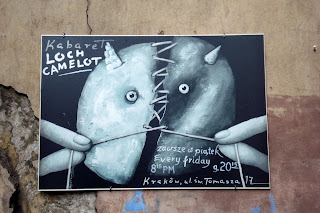 Kabaret
LOCH
CAMELOT
zawsze w piątek
Every friday
8¹⁵ PM g.20¹⁵
Kraków, ul. św. Tomasza 17